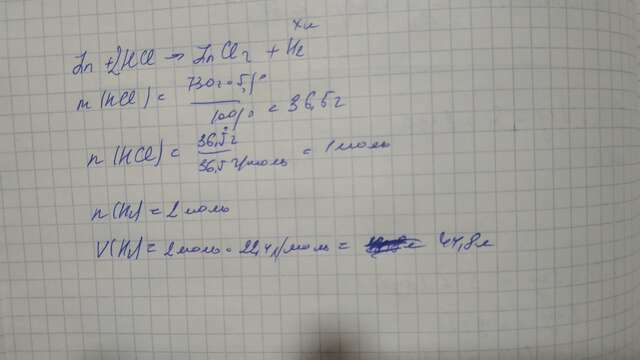 x л
Zn + 2HCl → ZnCl2 + H2
m (HCl) = 730г · 5% / 100% = 36,5г
n (HCl) = 36,5г / 36,5 г/моль = 1 моль
n (H2) = 2 моль
V(H2) = 2 моль · 22,4 л/моль = 44,8 л